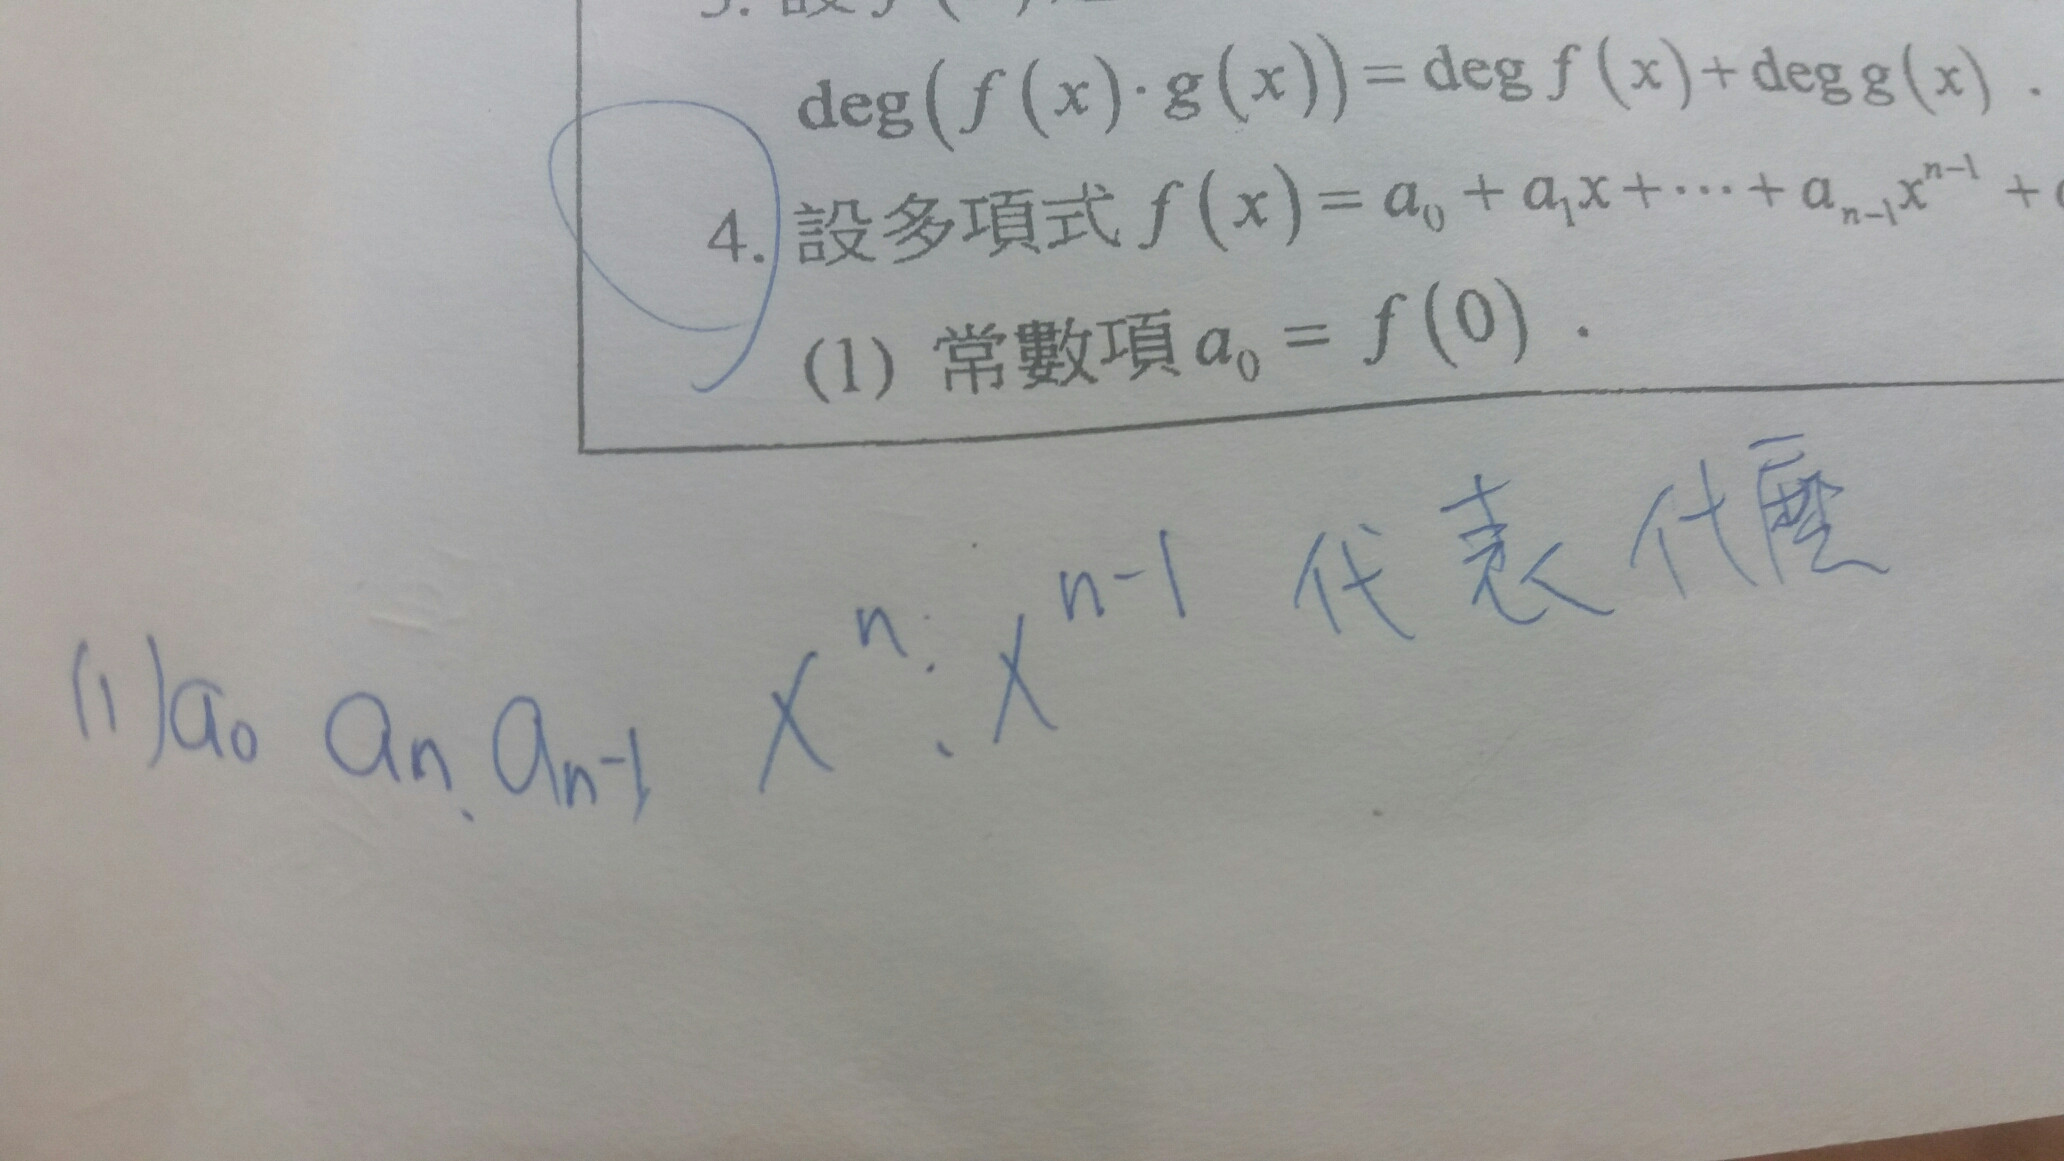 deg(f(x)·g(x))=deg f(x)+deg g(x).
4. 設多項式 f(x)=a₀+a₁x+⋯+aₙ₋₁xⁿ⁻¹+
(1) 常數項 a₀=f(0).
(1) a₀ aₙ、aₙ₋₁ xⁿ、xⁿ⁻¹ 代表什麼